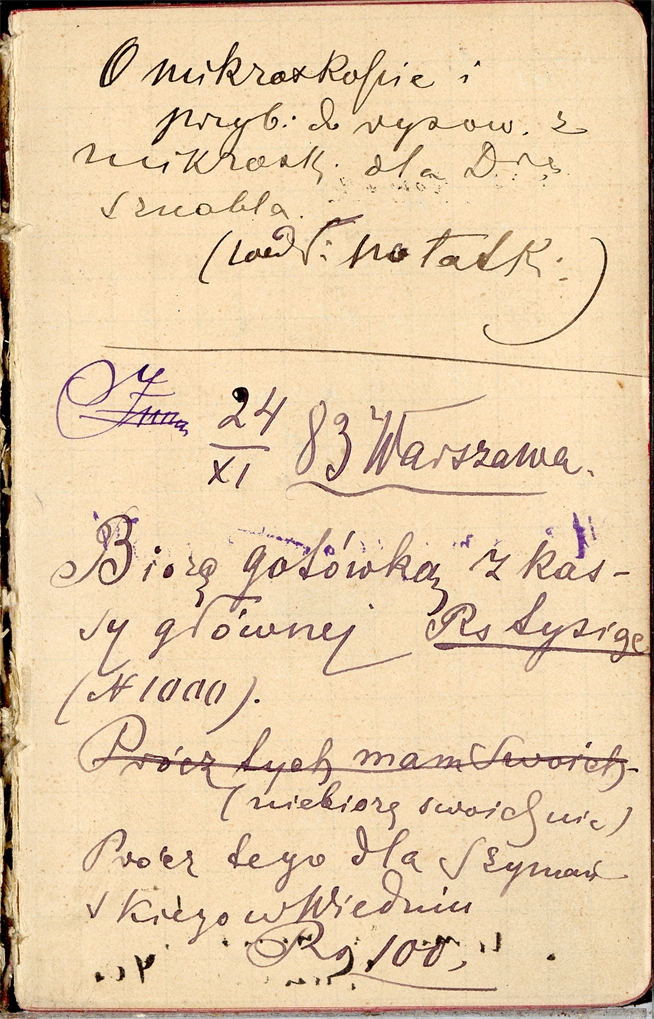 O mikroskopie i
przyb. do rysow. z
mikrosk. dla Dra
Sznabla.
(wedł. notatk.)
24/XI 83 Warszawa.
Biorę gotówką z kas-
sy głównej Rs tysiąc
(N 1000).
Prócz tych mam swoich
(niebiorę swoich nic)
Prócz tego dla Szymań
skiego w Wiedniu
Rs 100,